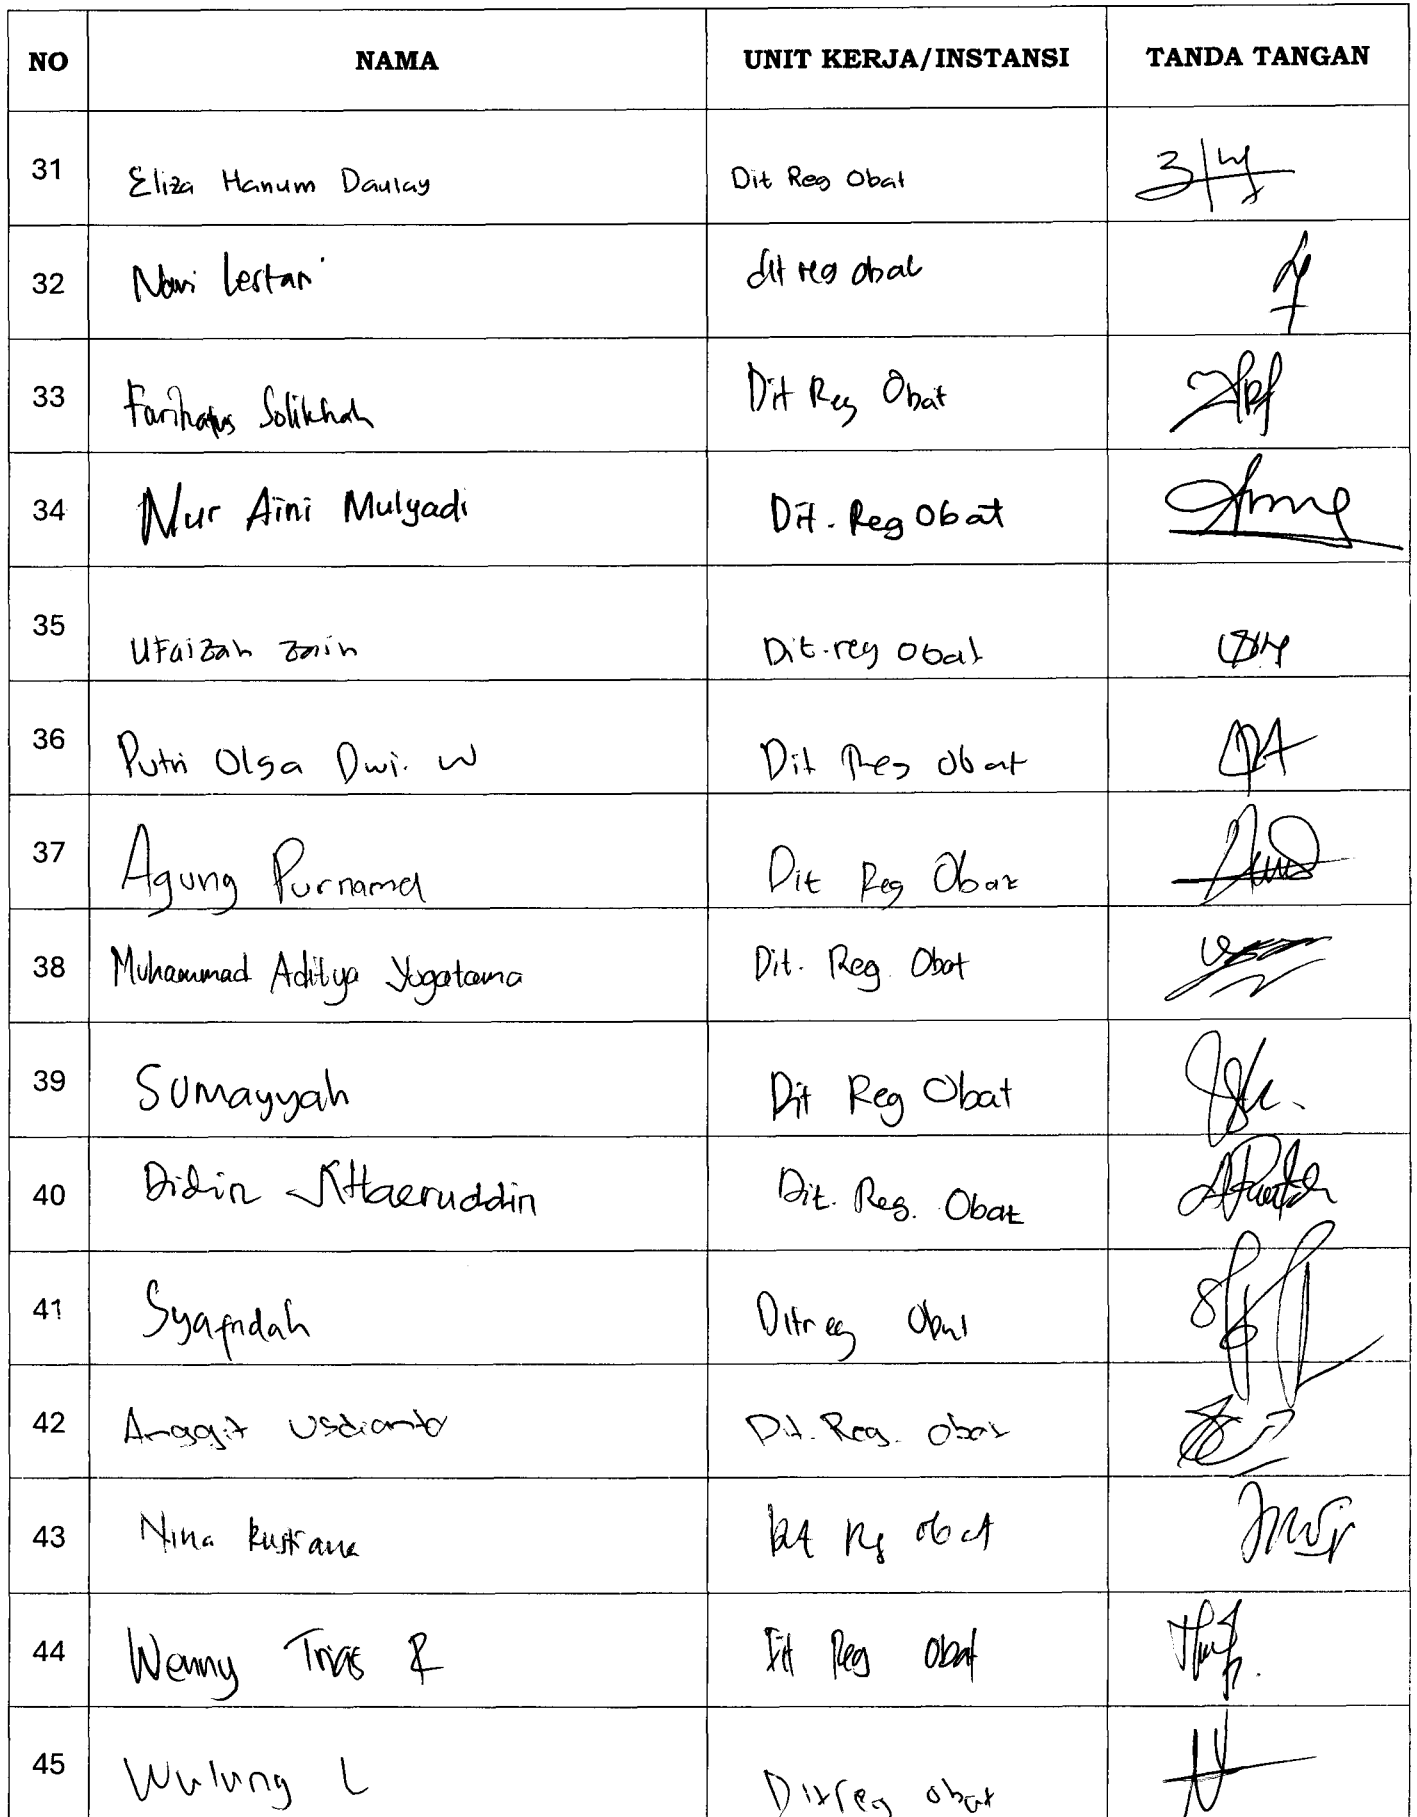 NO NAMA UNIT KERJA/INSTANSI TANDA TANGAN
31 Eliza Hanum Daulay Dit Reg Obat
32 Novi Lestari dit reg obat
33 Farihatus Solikhah Dit Reg Obat
34 Nur Aini Mulyadi Dit. Reg Obat
35 Ufaizah Zain Dit. reg Obat
36 Putri Olga Dwi. W Dit Reg Obat
37 Agung Purnama Dit Reg Obat
38 Muhammad Aditya Yogatama Dit. Reg. Obat
39 Sumayyah Dit Reg Obat
40 Didin Khaeruddin Dit. Reg. Obat
41 Syafridah Ditreg Obat
42 Anggit Usdianto Dit. Reg. Obat
43 Nina Rustiana Dit Reg Obat
44 Wenny Trias R Dit Reg Obat
45 Wulung L Ditreg obat